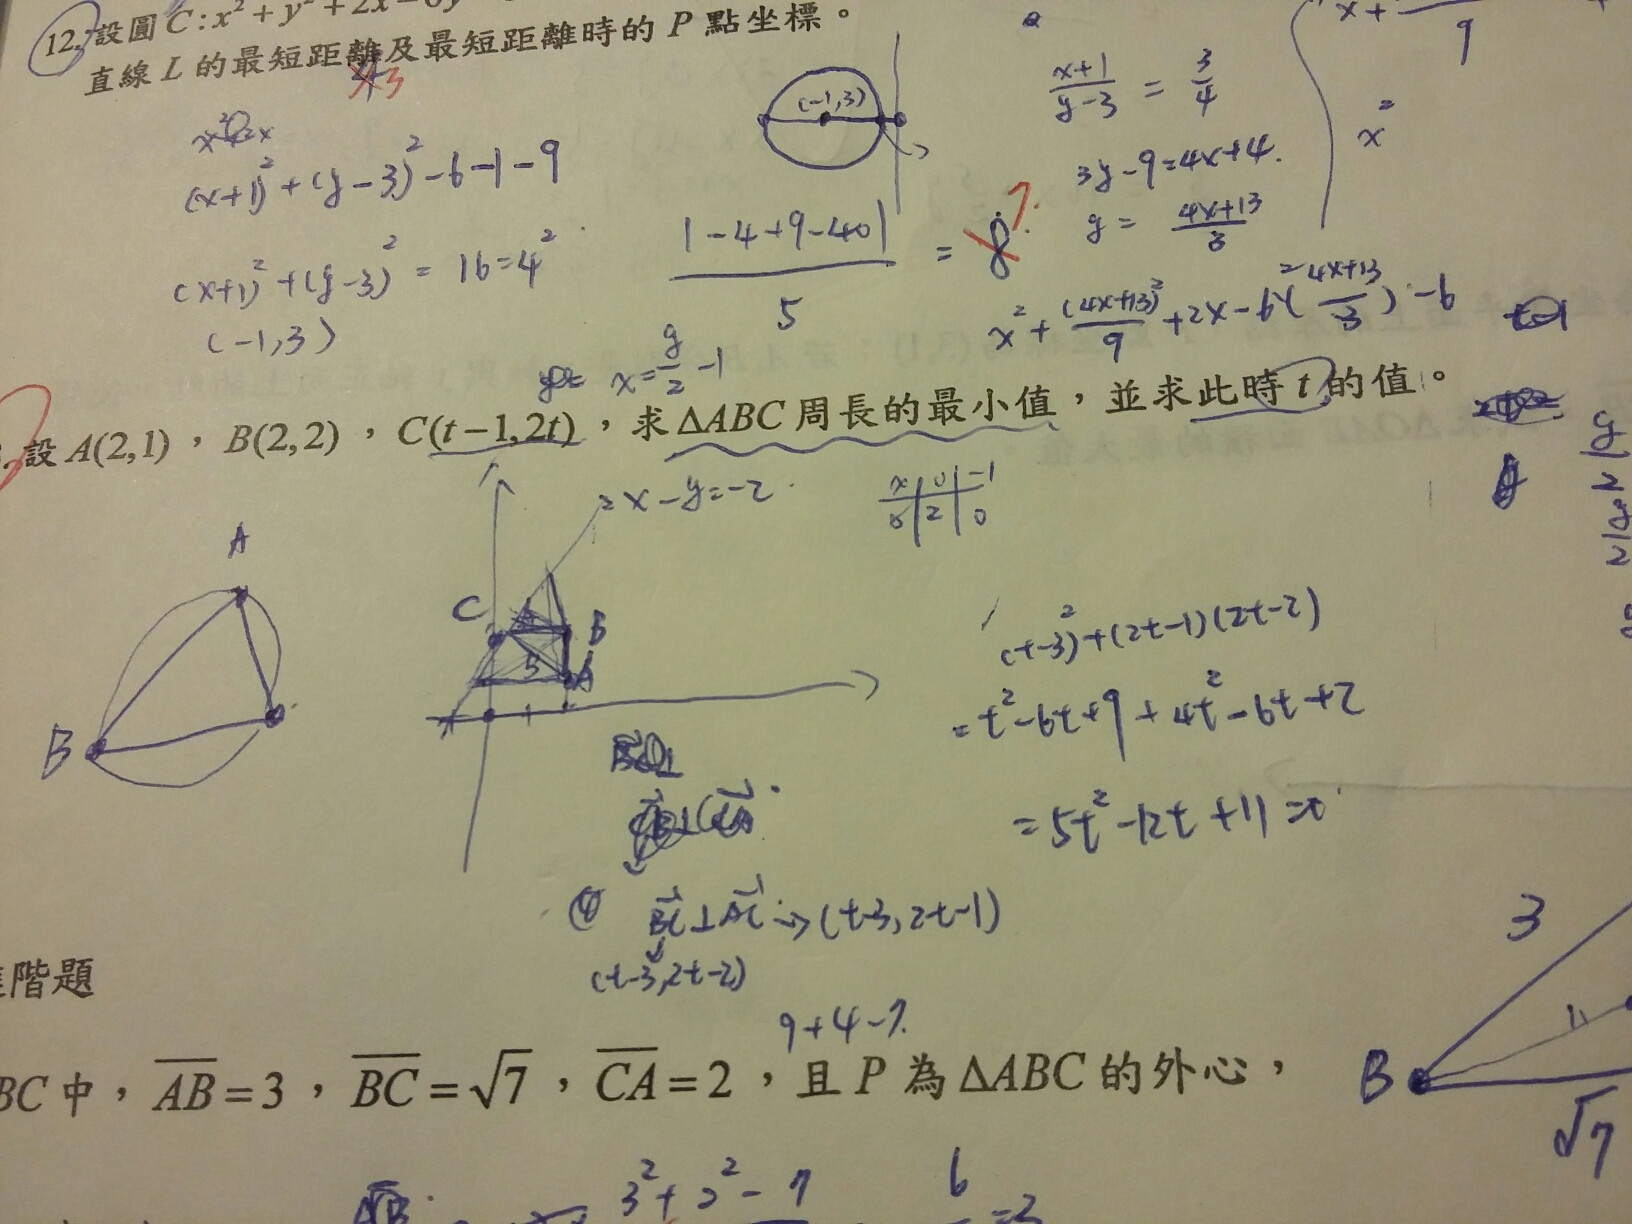 12. 設圓 C : x² + y² + 2x − 6y
直線 L 的最短距離及最短距離時的 P 點坐標。
(x+1)² + (y−3)² −6−1−9
(x+1)² + (y−3)² = 16 = 4²
(−1,3)
(−1,3)
|−4+9−40|
5
= 8
7.
x+1 / y−3 = 3/4
3y−9=4x+4.
y = 4x+13 / 3
x² + (4x+13)² / 9 + 2x − 6(4x+13 / 3) − 6
x +
9
x²
x = y/2 − 1
. 設 A(2,1) , B(2,2) , C(t−1,2t) , 求 ΔABC 周長的最小值,並求此時 t 的值。
2x−y=−2
x 0 −1
2 0
A
B
C
B
A
(t−3)² + (2t−1)(2t−2)
= t² −6t+9 + 4t² −6t+2
= 5t² −12t +11 =0
BC ⊥ AC → (t−3, 2t−1)
(t−3, 2t−2)
階題
9+4−7.
BC 中, AB = 3 , BC = √7 , CA = 2 , 且 P 為 ΔABC 的外心,
3
B
√7
AB
3² + 2² − 7
6